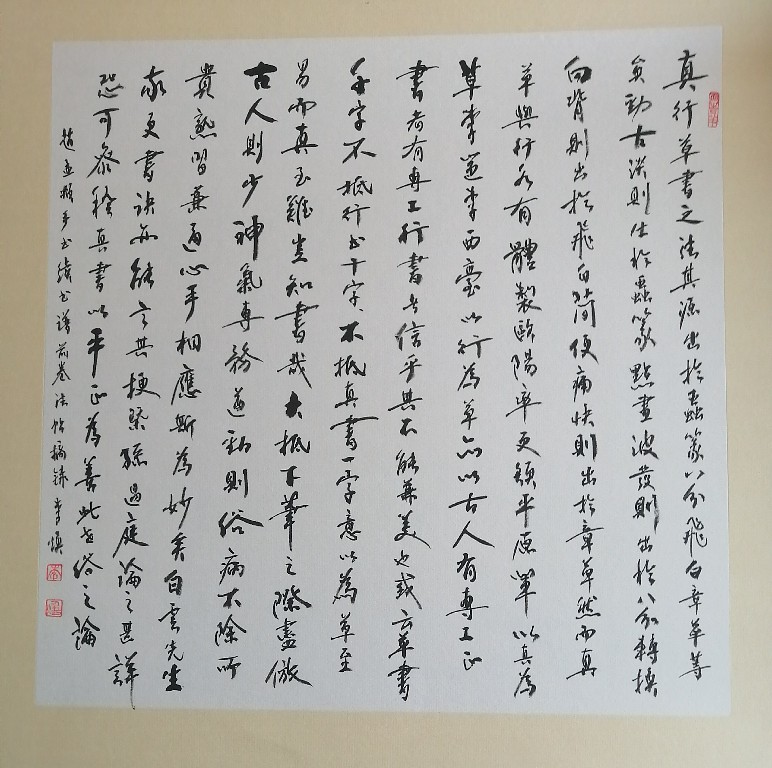 真行草書之法其源出於蟲篆八分飛白章草等
圓勁古淡則出於蟲篆點畫波發則出於八分轉換
向背則出於飛白簡便痛快則出於章草然而真
草與行各有體製歐陽率更顏平原輩以真為
草李邕李西臺以行為草亦以古人有專工正
書者有專工行書者信乎其不能兼美也或云草書
千字不抵行書十字行書十字不抵真書一字意以為草至
易而真至難豈知書哉大抵下筆之際盡倣
古人則少神氣專務遒勁則俗病不除所
貴熟習兼通心手相應斯為妙矣白雲先生
歐更書訣亦能言其梗槩孫過庭論之甚詳
恐可參稽真書以平正為善此世俗之論
趙孟頫手書續書譜前卷法帖摘錄 李